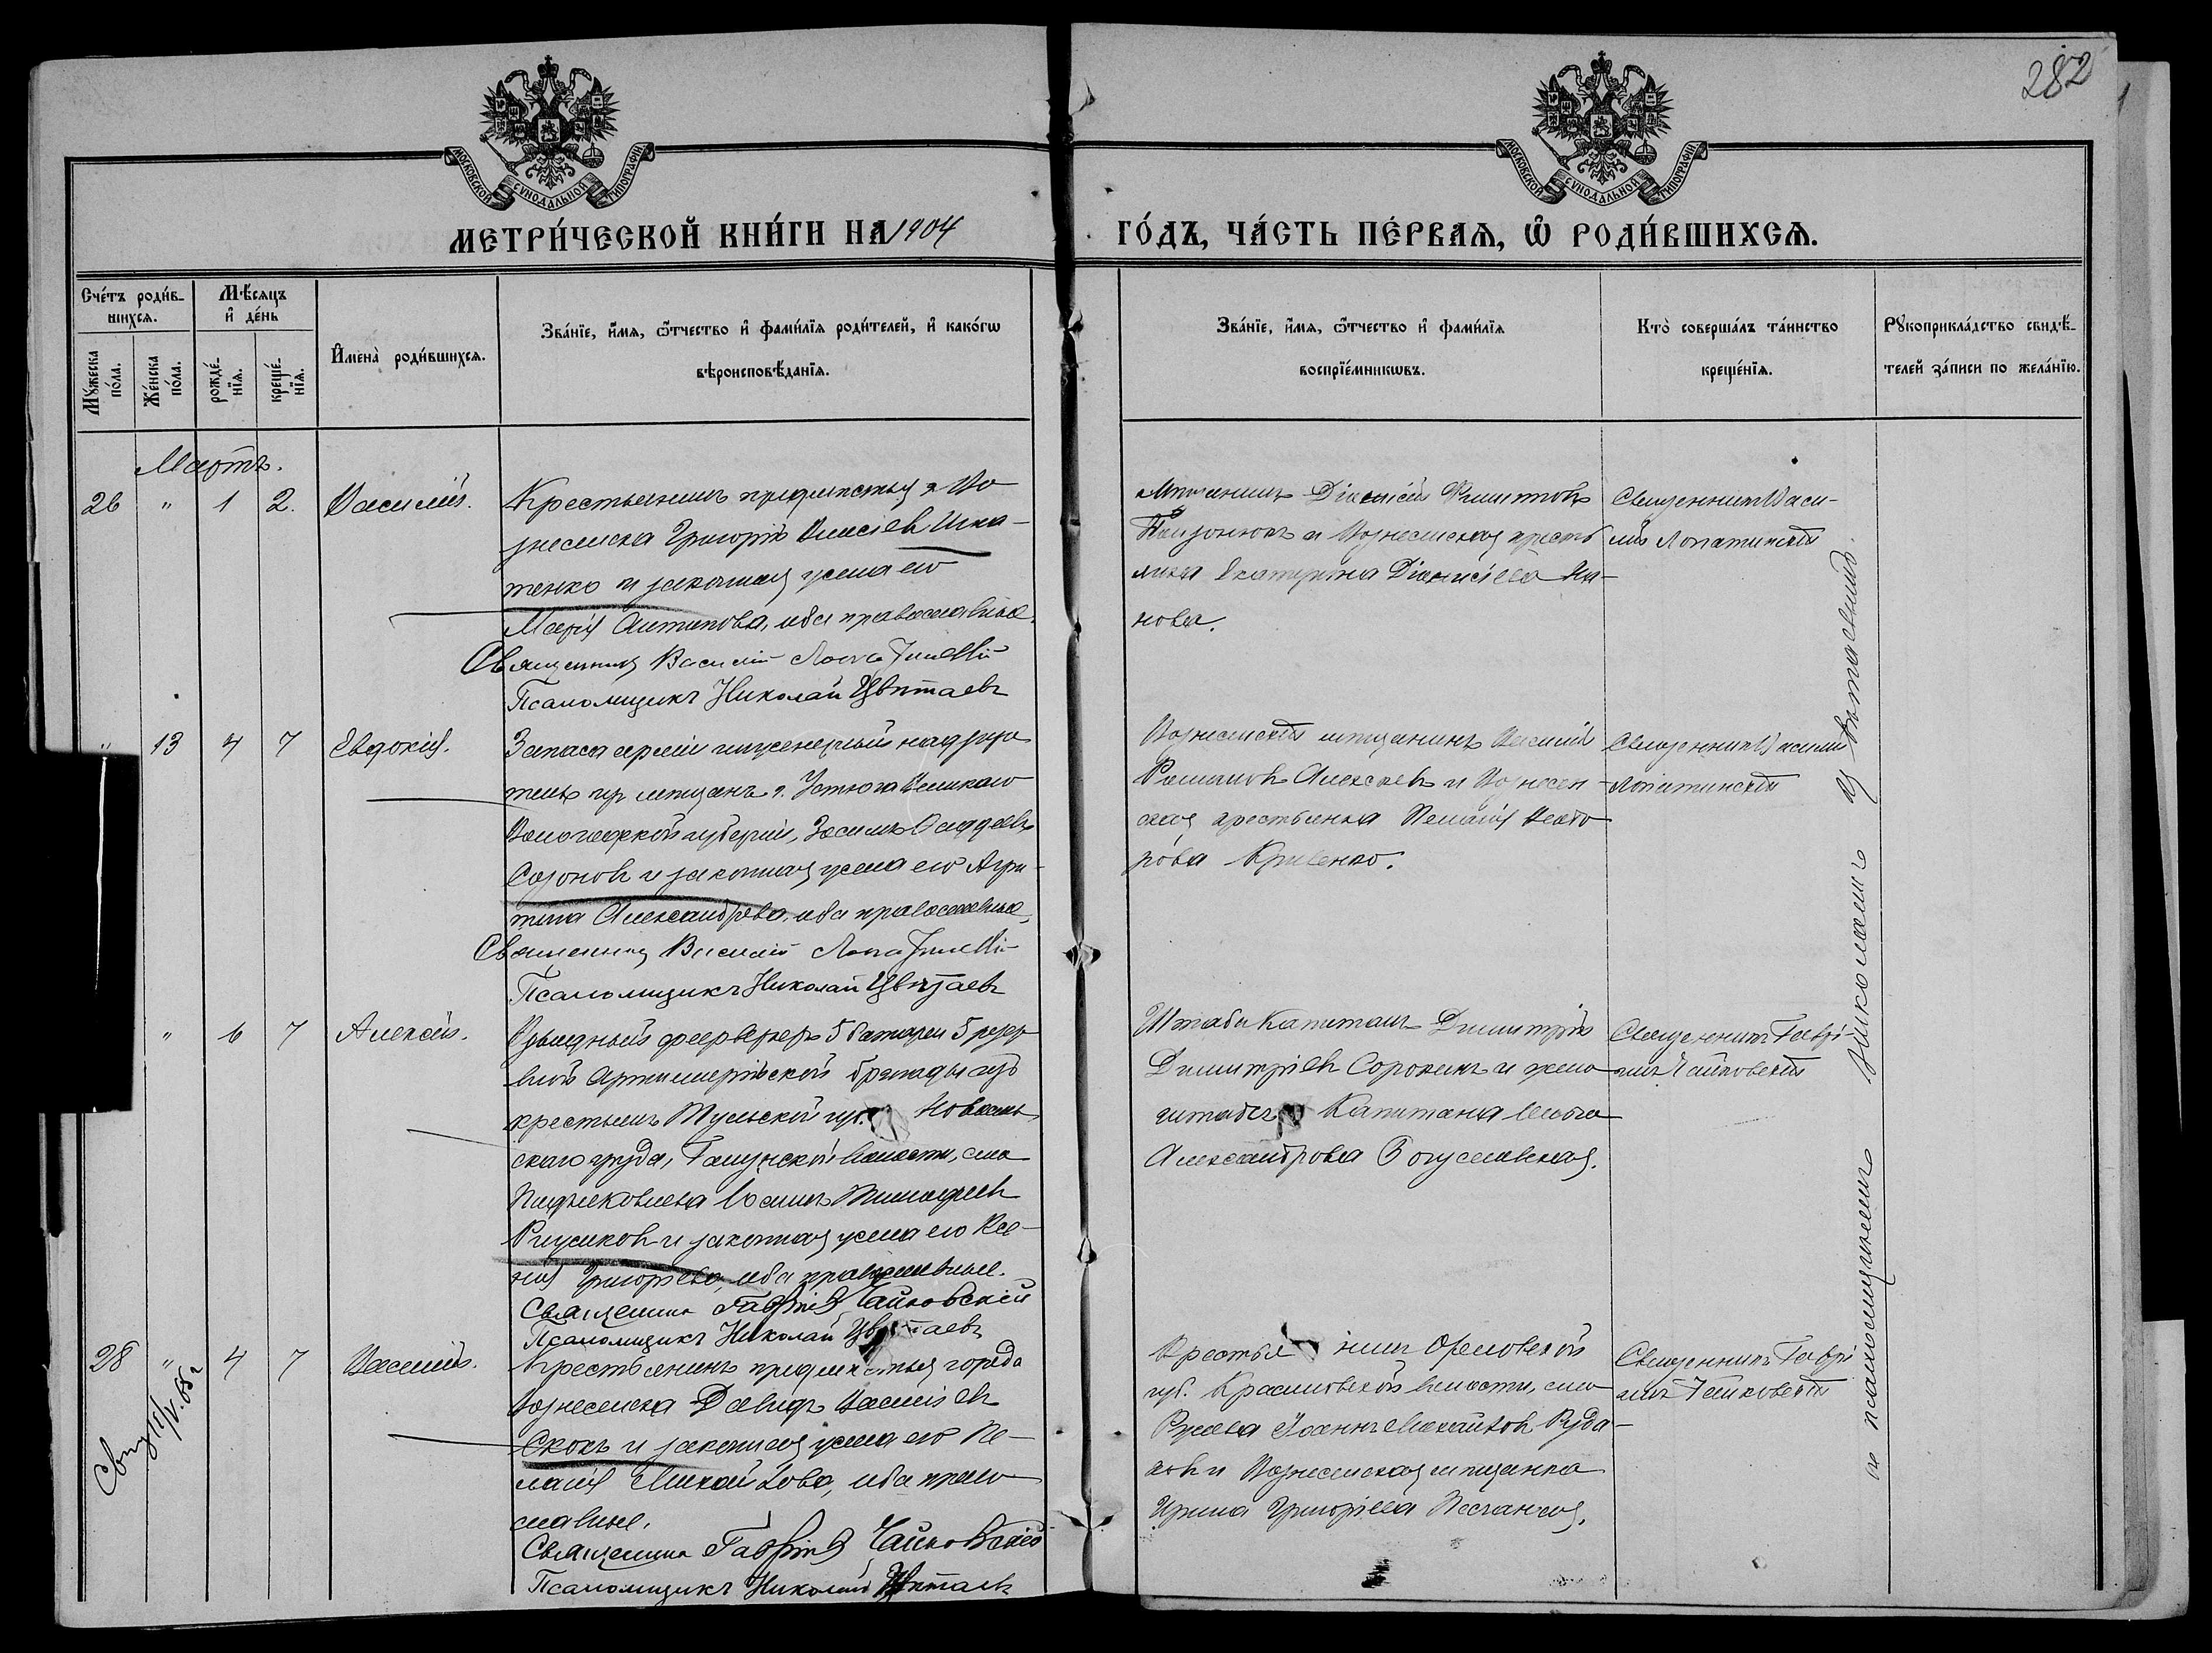 282
МОСКОВСКОЙ СУНОДАЛЬНОЙ ТИПОГРАФІИ
МОСКОВСКОЙ СУНОДАЛЬНОЙ ТИПОГРАФІИ
МЕТРИ́ЧЕСКОЙ КНИ́ГИ НА 1904
ГО́ДЪ, ЧА́СТЬ ПЕ́РВАЯ, Ѿ РОДИ́ВШИХСѦ.
Сче́тъ роди́в-
шихсѧ.
Мꙋ́жеска
по́ла.
Же́нска
по́ла.
Мѣ́сѧцъ
и҆ де́нь
рожде́-
нїѧ.
креще́-
нїѧ.
И҆мена̀ роди́вшихсѧ.
Зва́нїе, и҆́мѧ, ѻ҆́тчество и҆ фами́лїѧ роди́телей, и҆ како́гѡ
вѣроисповѣ́данїѧ.
Зва́нїе, и҆́мѧ, ѻ҆́тчество и҆ фами́лїѧ
воспрїе́мникѡвъ.
Кто̀ соверша́лъ та́инство
креще́нїѧ.
Рꙋкоприкла́дство свидѣ́-
телей за́писи по жела́нїю.
Мартъ.
26 " 1 2. Василій.
Крестьянинъ предмѣстья г. Во-
знесенска Григорій
тенко и законная жена его
Марія Антипова, оба православные.
Священникъ Василій Лопатинскій
Псаломщикъ Николай Цвѣтаевъ
Мѣщанинъ Діонисій Филиповъ
и Вознесенская кресть-
янка Екатерина Діонисіева Ива-
нова.
Священникъ Васи-
лій Лопатинскій
" 13 4 7 Евдокія.
Запаса арміи инженерный надзира-
тель изъ мѣщанъ г. Устюга Великаго
Вологодской губерніи, Фаддеевъ
Созоновъ и законная жена его Агри-
пина Александрова, оба православные.
Священникъ Василій Лопатинскій
Псаломщикъ Николай Цвѣтаевъ
Вознесенскій мѣщанинъ Василій
Романовъ Алексѣевъ и Вознесен-
ская крестьянка Пелагія Ѳеодо-
рова Кривенко.
Священникъ Василій
Лопатинскій
" 6 7 Алексѣй.
фейерверкеръ 5 батареи 5 резер-
вной Артиллерійской бригады изъ
крестьянъ Тульской губ. Новосиль-
скаго уѣзда, волости, села
Тимофеевъ
и законная жена его Ксе-
нія Григорьева, оба православные.
Священникъ Гавріилъ Чайковскій
Псаломщикъ Николай Цвѣтаевъ
Штабсъ Капитанъ Димитрій
Димитріевъ Сорокинъ и жена
штабсъ Капитана Ольга
Александрова Богуславская.
Священникъ Гаврі-
илъ Чайковскій
28 " 4 7 Василій.
Крестьянинъ предмѣстья города
Вознесенска Давидъ Васильевъ
Скокъ и законная жена его Пе-
лагія Михайлова, оба право-
славные.
Священникъ Гавріилъ Чайковскій
Псаломщикъ Николай Цвѣтаевъ
Крестьянинъ Орловской
губ. волости, села
Іоаннъ Михайловъ Руда-
ковъ и Вознесенская мѣщанка
Ирина Григоріева Песчаная.
Священникъ Гаврі-
илъ Чайковскій
съ псаломщикомъ Николаемъ Цвѣтаевымъ.